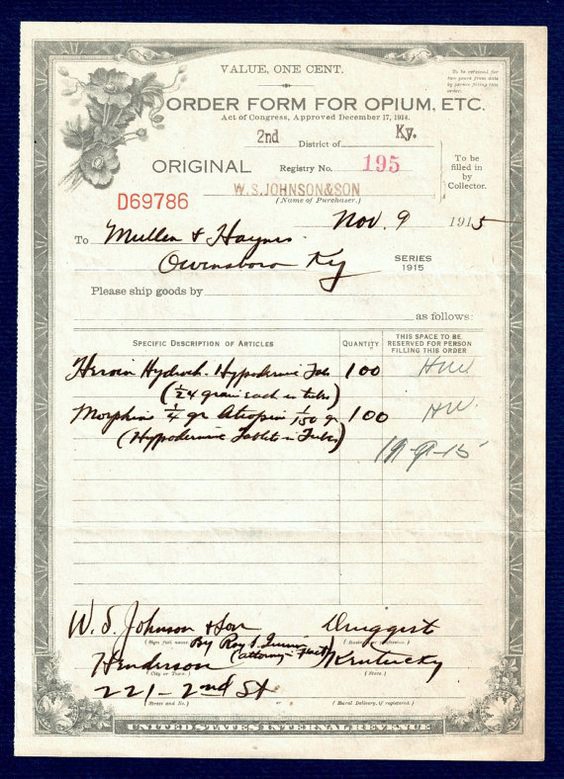 VALUE, ONE CENT.
To be retained for two years from date by person filling this order.
ORDER FORM FOR OPIUM, ETC.
Act of Congress, Approved December 17, 1914.
2nd District of Ky.
ORIGINAL Registry No. 195
To be filled in by Collector.
W.S.JOHNSON&SON
D69786
(Name of Purchaser.)
Nov. 9 1915
To Mullen & Haynes
Owensboro Ky
SERIES 1915
Please ship goods by
as follows:
SPECIFIC DESCRIPTION OF ARTICLES QUANTITY THIS SPACE TO BE RESERVED FOR PERSON FILLING THIS ORDER
Heroin Hydroch. Hypodermic Tabs 100 HW
(1/24 grain each in tubes)
Morphine 1/4 gr Atropin 1/150 gr 100 HW
(Hypodermic Tablets in Tubes)
W. S. Johnson & Son Druggist
(Sign full name.)
By Roy
(attorney in Fact)
Henderson Kentucky
(City or Town.) (State.)
221-2nd St
(Street and No.) or (Rural Delivery, if registered.)
UNITED STATES INTERNAL REVENUE